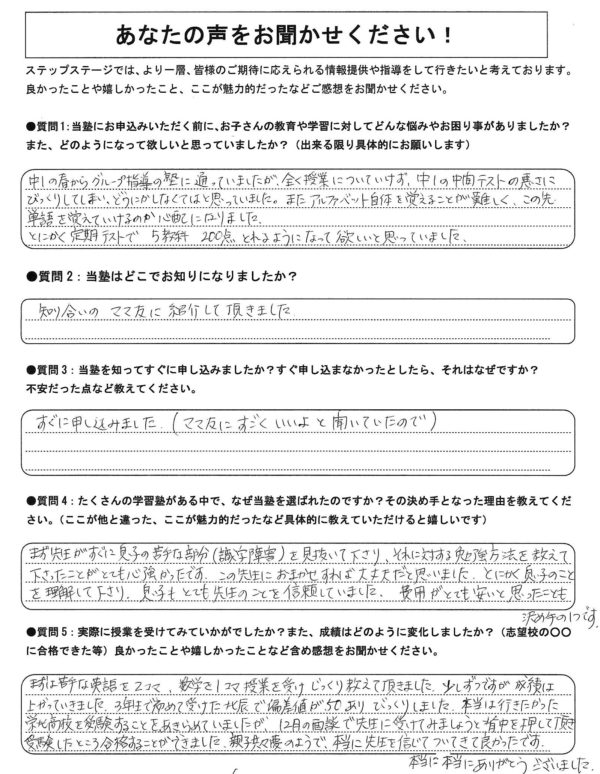 あなたの声をお聞かせください！
ステップステージでは、より一層、皆様のご期待に応えられる情報提供や指導をして行きたいと考えております。
良かったことや嬉しかったこと、ここが魅力的だったなどご感想をお聞かせください。
●質問1：当塾にお申込みいただく前に、お子さんの教育や学習に対してどんな悩みやお困り事がありましたか？
また、どのようになって欲しいと思っていましたか？（出来る限り具体的にお願いします）
中1の春からグループ指導の塾に通っていましたが、全く授業についていけず、中1の中間テストの悪さに
びっくりしてしまい、どうにかしなくてはと思っていました。またアルファベット自体を覚えることが難しく、この先
単語を覚えていけるのか心配になりました。
とにかく定期テストで 5教科 200点 とれるようになって欲しいと思っていました。
●質問2：当塾はどこでお知りになりましたか？
知り合いの ママ友に 紹介して頂きました
●質問3：当塾を知ってすぐに申し込みましたか？すぐ申し込まなかったとしたら、それはなぜですか？
不安だった点など教えてください。
すぐに申し込みました。（ママ友に すごく いいよ と聞いていたので）
●質問4：たくさんの学習塾がある中で、なぜ当塾を選ばれたのですか？その決め手となった理由を教えてくだ
さい。（ここが他と違った、ここが魅力的だったなど具体的に教えていただけると嬉しいです）
まず先生がすぐに息子の苦手な部分（識字障害）を見抜いて下さり、それに対する勉強方法を教えて
下さったことがとても心強かったです。この先生におまかせすれば大丈夫だと思いました。とにかく息子のこと
を理解して下さり、息子も とても先生のことを信頼していました。費用がとても安いと思ったことも
決め手の1つです。
●質問5：実際に授業を受けてみていかがでしたか？また、成績はどのように変化しましたか？（志望校の〇〇
に合格できた等）良かったことや嬉しかったことなど含め感想をお聞かせください。
まずは苦手な英語を2コマ、数学を1コマ授業を受け じっくり教えて頂きました。少しずつですが 成績は
上がっていきました。3年生で初めて受けた北辰で偏差値が50あり びっくりしました。本当は行きたかった
栄北高校を受験することをあきらめていましたが、12月の面談で先生に受けてみましょうと背中を押して頂き
受験したところ合格することができました。親子共々夢のようで、本当に先生を信じてついてきて良かったです。
本当に本当にありがとうございました。